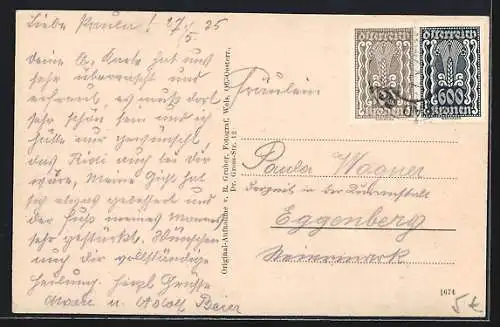 Liebe Paula! 27/5 25
deine l. Karte hat uns
sehr überrascht und
erfreut, es muß dort
sehr schön sein und ich
hätte nur gewünscht,
das Rudi auch bei dir
wäre, Meine Gicht hat
sich etwas gebessert und
der Fuß meines Mannes
sehr gestärkt. Wünschen
auch dir vollständige
Heilung. Herzl Grüsse
u. Adolf Beier
Original-Aufnahme v. R. Gruber, Fotograf, Wels, Ob.-Oesterr.,
Dr. Gross-Str. 12.
österreich
kronen
österreich
600
kronen
Fräulein
Paula Wagner
derzeit in der Kuranstalt
Eggenberg
Steiermark
1674
5€